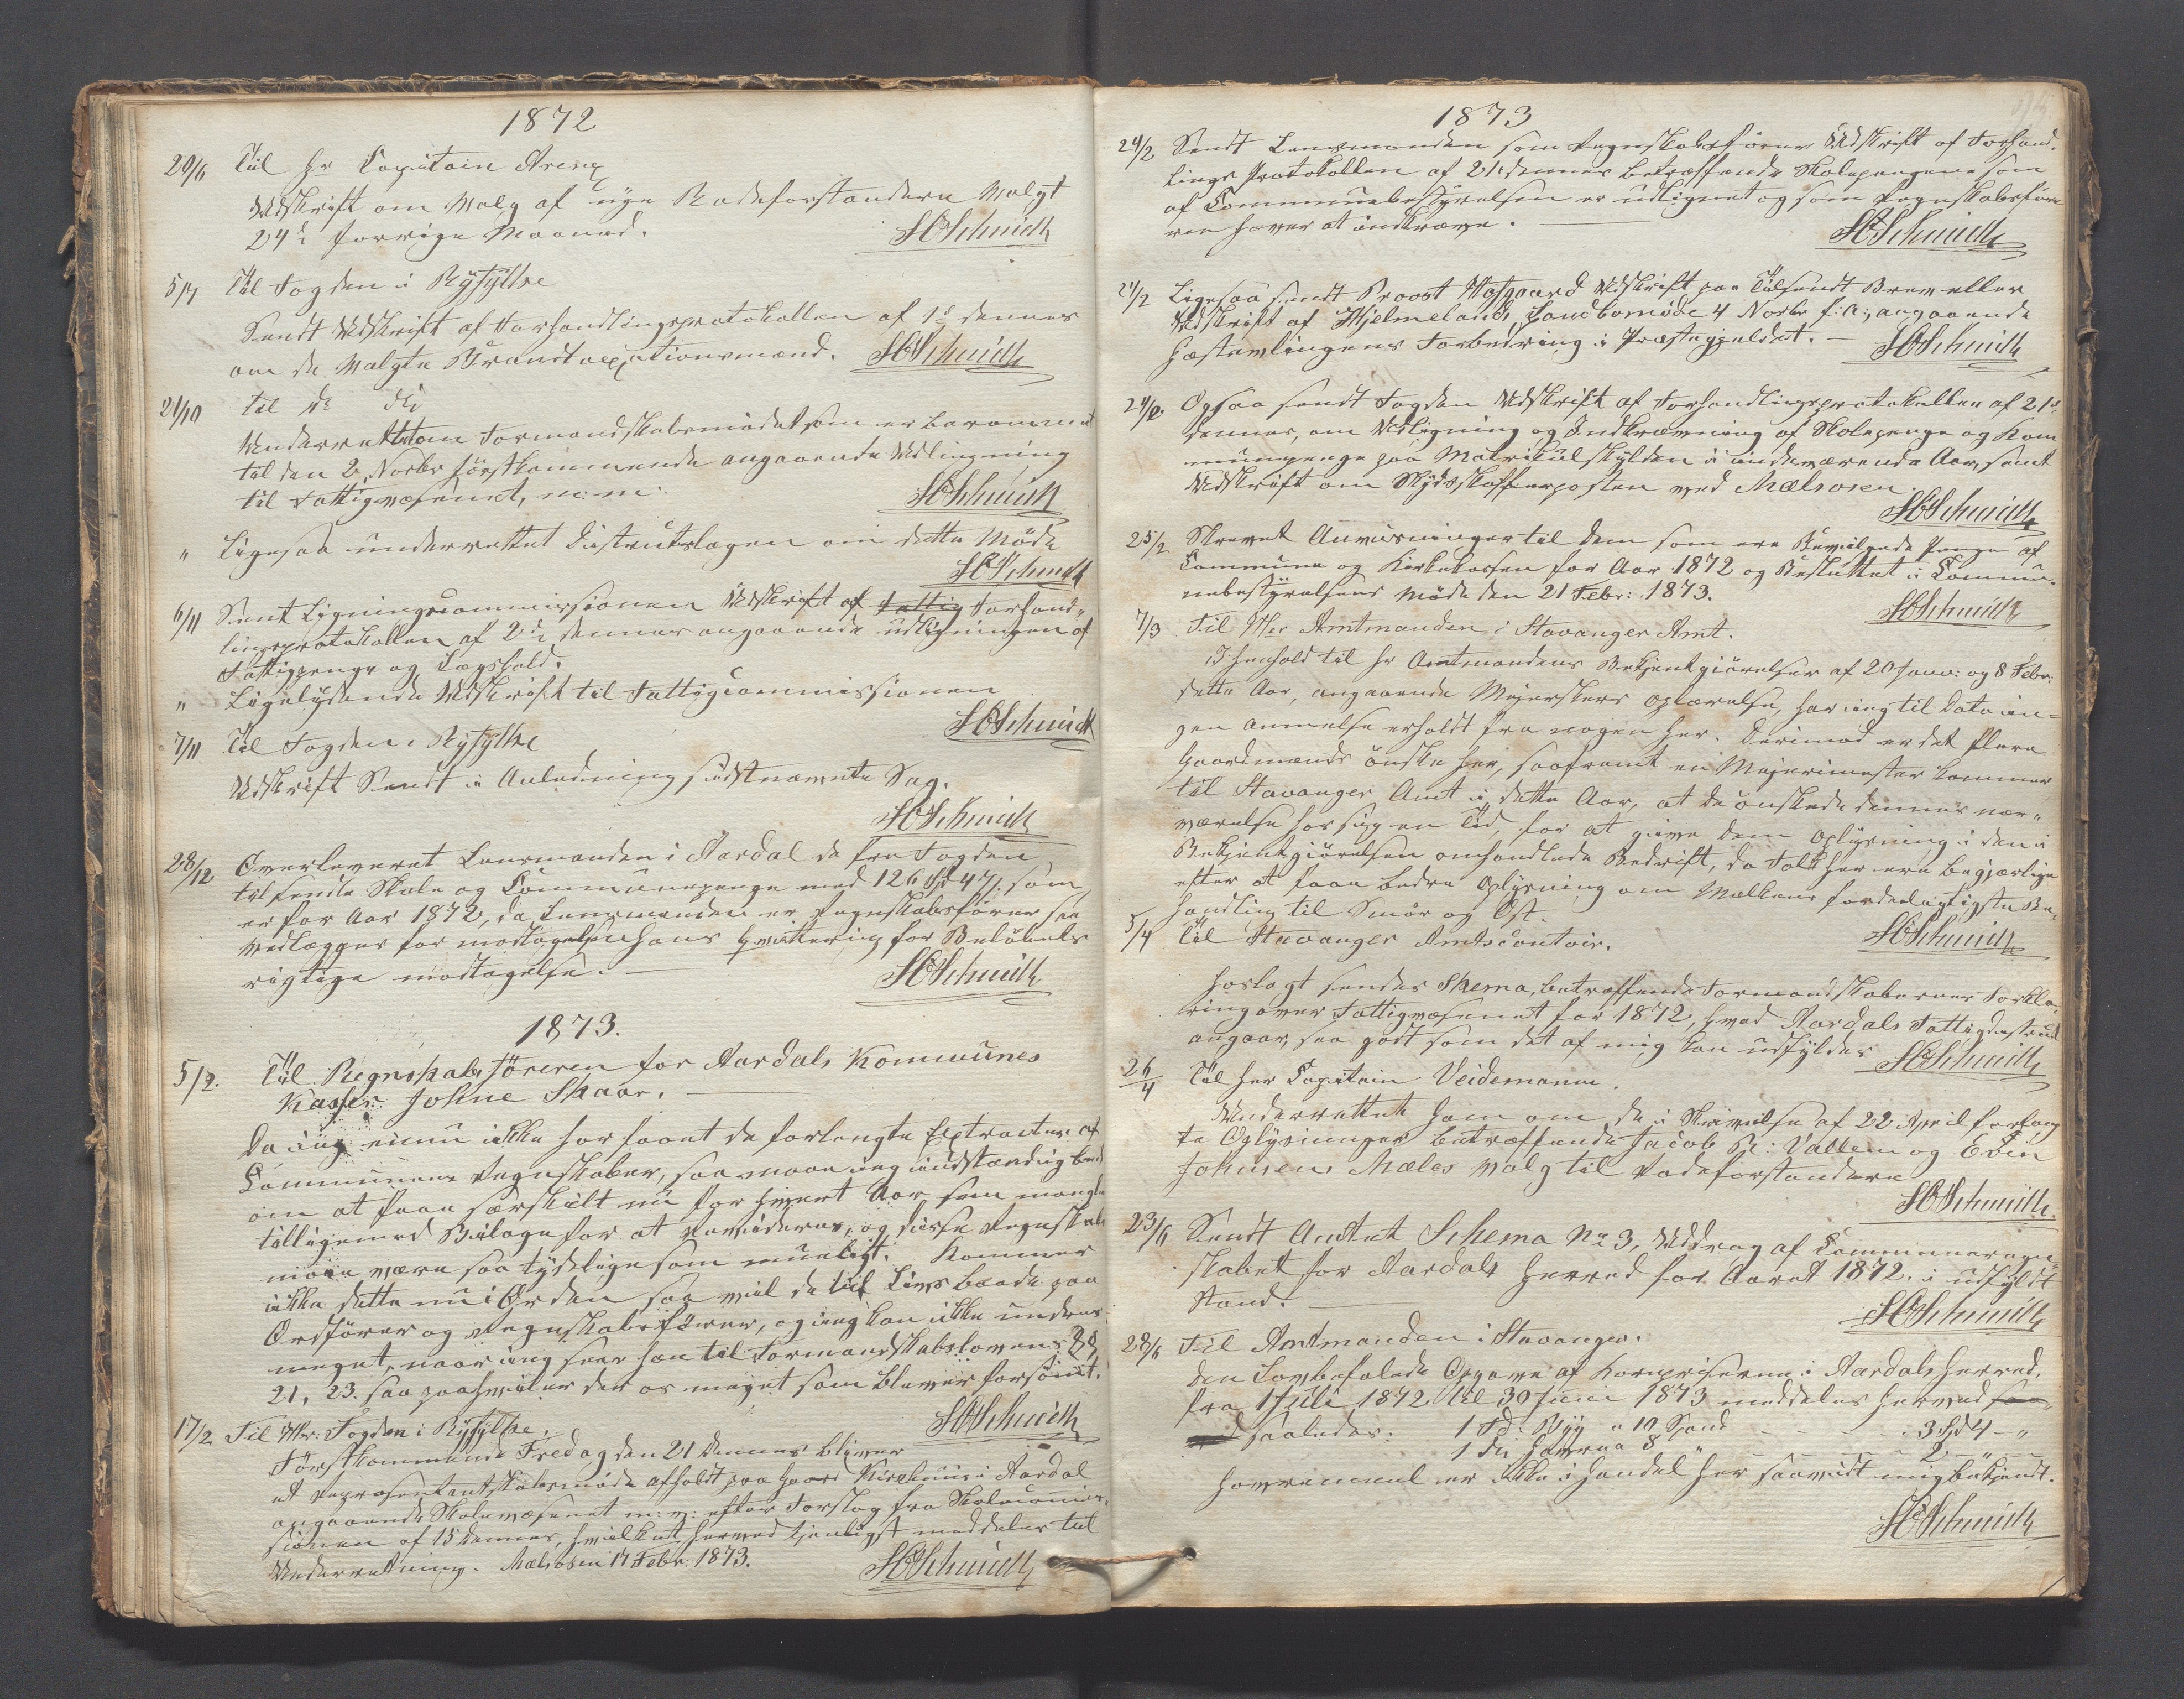 1872
20/6 Til Hr Capitain Areng
Udskrift om Valg af nye Rodeforstandere Valgt
24de forrige Maaned.
SCSchmidt
5/7 Til Fogden i Ryfylke
Sendt Udskrift af Forhandlingsprotokollen af 1ste dennes
om de Valgte Brandtaxationsmænd. SCSchmidt
21/10 til
Underrettet om Formandskabsmødet som er berammet
til den 2 Novbr førstkommende angaaende Udligning
til Fattigvæsenet, m: m:
SCSchmidt
" Ligesaa underrettet Districtslægen om dette Møde
SCSchmidt
6/11 Sent Ligningscommissionen Udskrift af Fattig Forhand-
lingsprotokollen af 2den dennes angaaende udligningen af
Fattigpenge og Lægshold.
" Ligelydende Udskrift til Fattigcommissionen
SCSchmidt
7/11 Til Fogden i Ryfylke
Udskrift Sendt i Anledning sidstnævnte Sag.
SCSchmidt
28/12 Overleveret Lensmanden i Aardal de fra Fogden
tilsendte Skole og Communepenge med 126 Spd 47 s. som
er for Aar 1872, da Lensmanden er Regnskabsfører saa
vedlægges for modtagelsen hans qvittering for Beløbets
rigtige modtagelse. —
SCSchmidt
1873.
5/2. Til Regnskabsføreren for Aardals Kommunes
Kasse Johne Skaar. —
Da jeg ennu ikke har faaet de forlangte Extracter af
Communens Regnskaber, saa maae jeg indstændig bede
om at faae særskilt nu for hvert Aar som mangler
tilligemed Bilage for at Revideres, og disse Regnskab
maae være saa tydelige som mueligt. Kommer
ikke dette nu i Orden saa vil de tiltales baade paa
Ordfører og Regnskabsfører, og jeg kan ikke undres
meget, naar jeg seer hen til Formandskabslovens §§
21, 23. saa paahviler der os meget som bliver forsømt.
SCSchmidt
17/2 Til Hr. Fogden i Ryfylke.
Førstkommende Fredag den 21 Dennes bliver
et Representantskabsmøde afholdt paa Gaard Kirkhuus i Aardal
angaaende Skolevæsenet m: v: efter Forslag fra Skolecomis-
sionen af 15 Dennes, hvilket herved tjenligst meddeles til
Underretning. Mælsosen 17 Febr: 1873. SCSchmidt
1873
24/2 Sendt Lensmanden som Regnskabsfører Udskrift af Forhand-
lings Protokollen af 21 dennes betræffende Skolepengene som
af Communebestyrelsen er udlignet og som Regnskabsføre
ren haver at indkræve. —
SCSchmidt
24/2 Ligesaa sendt Proost Hofgaard Udskrift paa Tilsendt Brev eller
Udskrift af Hjelmelands Landbomøde 4 Novbr f: A:, angaaende
Hesteavlingens Forbedring i Præstegjeldet. — SCSchmidt
24/2. Ogsaa sendt Fogden Udskrift af Forhandlingsprotokollen af 21de
Dennes, om Udligning og Indkrævning af Skolepenge og Kom
munepenge paa Matrikulskylden i indeværende Aar, samt
Udskrift om Skydsskafferposten ved Mælsosen
SCSchmidt
25/2 Skrevet Anvisninger til dem som ere Bevilgede Penge af
Commune og Kirkekassen for Aar 1872 og Besluttet i Commu-
nebestyrelsens Møde den 21 Febr: 1873.
SCSchmidt
7/3 Til Hr Amtmanden i Stavanger Amt.
I Henhold til Hr Amtmandens Bekjentgjørelser af 20 Janv: og 8 Febr:
dette Aar, angaaende Mejerskers oplærelse, har jeg til Dato in-
gen anmelse erholdt fra nogen her. Derimod er det flere
Gaardmænds ønske her, saafremt en Mejerimester kommer
til Stavanger Amt i dette Aar, at de ønskede dennes nær-
værelse hos sig en tid, for at give dem oplysning i den i
Bekjentgjørelsen omhandlede Bedrift, da Folk her ere begjærlige
efter at faae bedre Oplysning om Mælkens fordelagtigste Be-
handling til Smør og Ost.
SCSchmidt
5/4 Til Stavanger Amtscontoir.
Hoslagt sendes Skema, betræffende Formandskabernes Forkla-
ring over Fattigvæsenet for 1872, hvad Aardals Fattigdistrict
angaar, saa godt som det af mig kan udfyldes SCSchmidt
26/4 Til Her Capitain Veidemann.
Underrettet ham om de i Skrivelse af 22 April forlang
te Oplysninger betræffende Jacob R: Valleng og Edvin
Johnsens Mæles valg til Rodeforstandere
SCSchmidt
23/6 Sendt Amtet Schema No 3, Uddrag af Communeregn-
skabet for Aardals Herred for Aaret 1872. i udfyldt
Stand. —
SCSchmidt
28/6 Til Amtmanden i Stavanger.
Den Lovbefalede Opgave af Kornpriserne i Aardals Herred,
fra 1 Juli 1872 til 30 Juni 1873 meddeles herved saa-
saaledes. 1 Td: Byg a 10 Spand - - - 3 Spd 4 - "
1 Do: Havre a 8 2 " "
Havremeel er ikke i Handel her saavidt mig bekjendt.
SCSchmidt